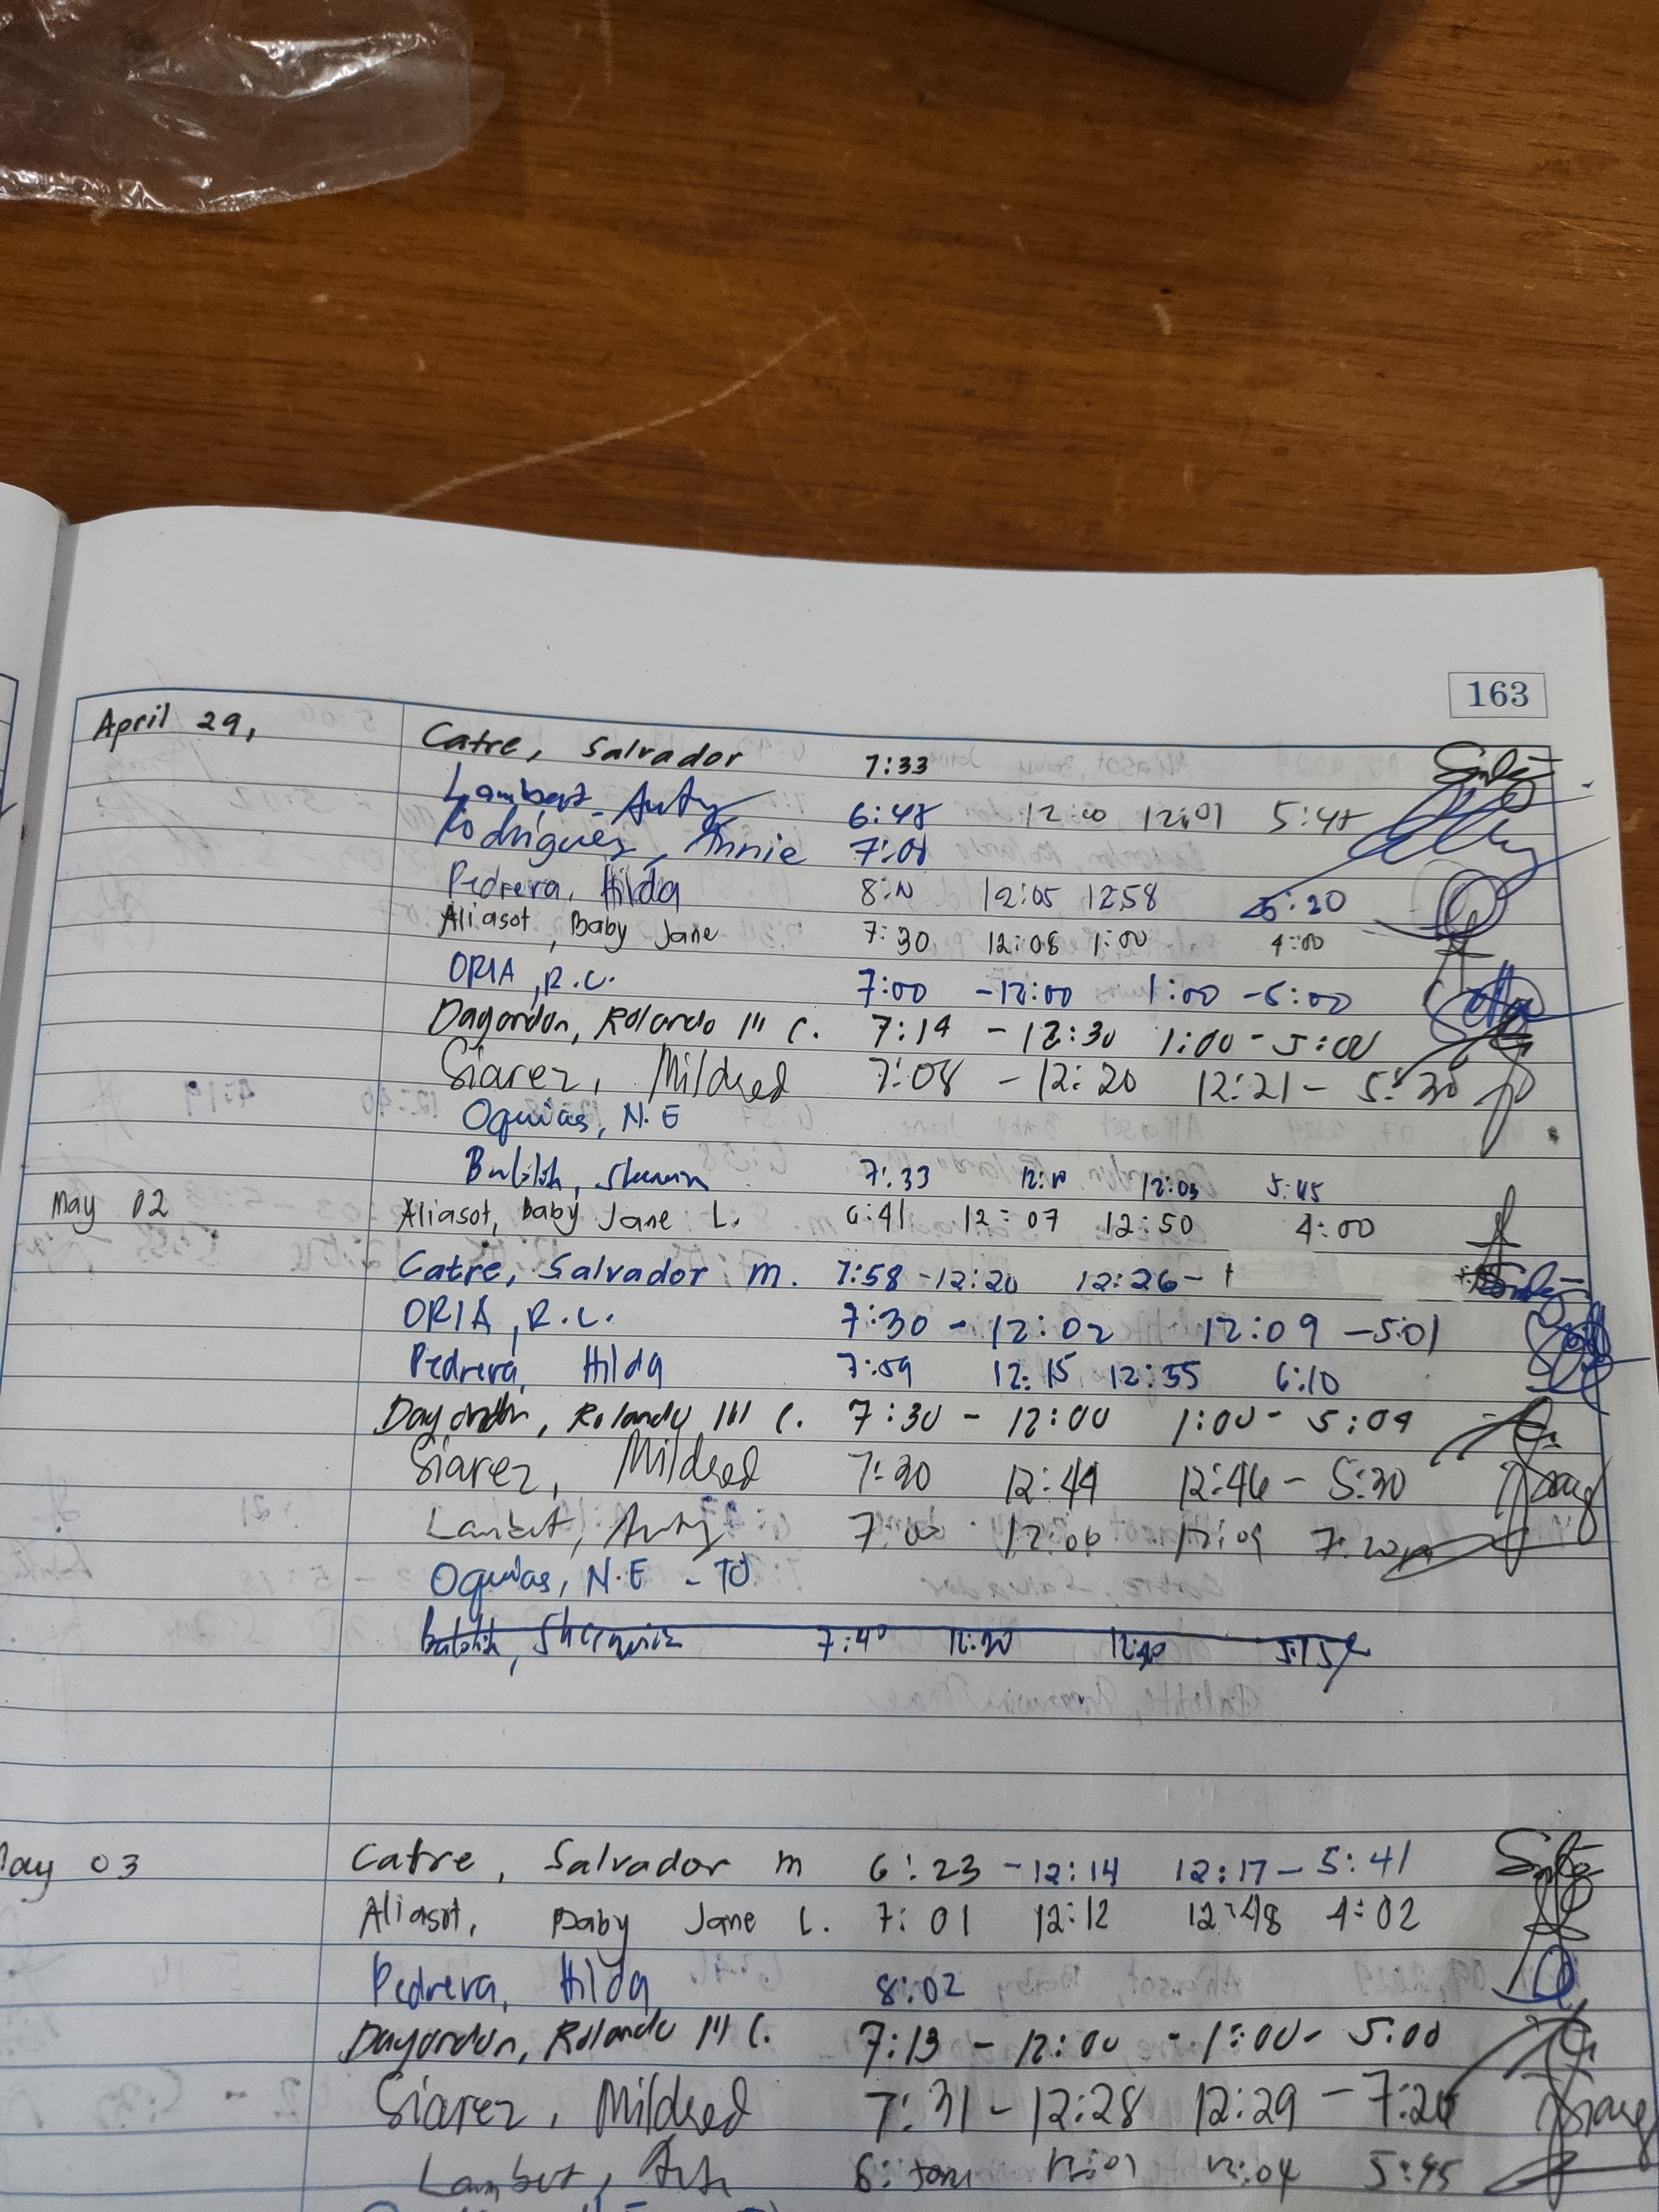 163
April 29, Catre, Salvador 7:33
Lambert, 6:48 12:00 12:01 5:48
Rodriguez, Annie 7:01
Pedrera, Hilda 12:05 12:58 5:30
Aliasot, Baby Jane 7:30 12:08 1:00 4:00
ORIA, R.C. 7:00 -12:00 1:00 -5:00
Dagondon, Rolando III C. 7:14 - 12:30 1:00 - 5:00
Siarez, Mildred 7:08 - 12:20 12:21 - 5:30
Oquias, N.E
7:33 12:03 5:45
May 02 Aliasot, Baby Jane L. 6:41 12:07 12:50 4:00
Catre, Salvador m. 7:58 -12:20 12:26-
ORIA, R.C. 7:30 - 12:02 12:09 -5:01
Pedrera, Hilda 7:59 12:15 12:55 6:10
Dagondon, Rolando III C. 7:30 - 12:00 1:00 - 5:04
Siarez, Mildred 7:30 12:44 12:46 - 5:30
Lambert, 7:00 12:06 12:09 7:20
Oquias, N.E - TO
7:40 12:30
May 03 Catre, Salvador m 6:23 -12:14 12:17 - 5:41
Aliasot, Baby Jane L. 7:01 12:12 12:48 4:02
Pedrera, Hilda 8:02
Dagondon, Rolando III C. 7:13 - 12:00 - 1:00 - 5:00
Siarez, Mildred 7:31 - 12:28 12:29 - 7:26
Lambert, 12:01 12:04 5:45